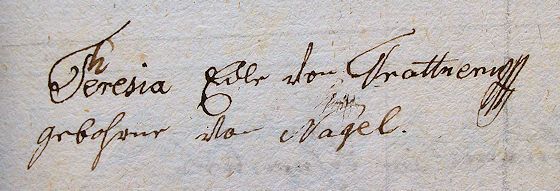 Theresia Edle von Trattnern
gebohrne von Nagel.